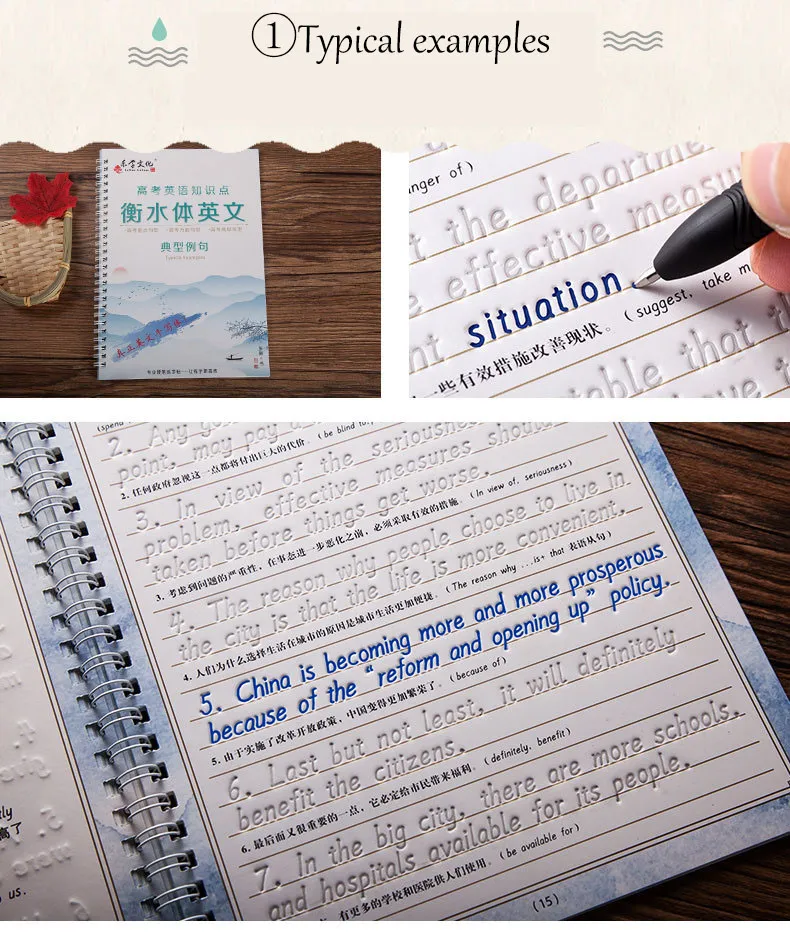 ①Typical examples
乐字文化
高考英语知识点
衡水体英文
典型例句
Typical examples
专业硬笔练字帖——让练字更高效
anger of)
t the departme
e effective measu
nt situation.
一些有效措施改善现状。(suggest, take m
able that th
(spend
2. Any go
point, may pay a
2. 任何政府忽视这一点都将付出巨大的代价。(be blind to,
3. In view of the seriousness
problem, effective measures should
taken before things get worse.
3. 考虑到问题的严重性，在事态进一步恶化之前，必须采取有效的措施。(In view of, seriousness)
4. The reason why people choose to live in
the city is that the life is more convenient.
4. 人们为什么选择生活在城市的原因是城市生活更加便捷。(The reason why ...is+ that 表语从句)
5. China is becoming more and more prosperous
because of the “reform and opening up” policy.
5. 由于实施了改革开放政策，中国变得更加繁荣了。(because of)
6. Last but not least, it will definitely
benefit the citizens.
6. 最后而又很重要的一点，它必定给市民带来福利。(definitely, benefit)
7. In the big city, there are more schools,
and hospitals available for its people.
有更多的学校和医院供人们使用。(be available for)
(15)
高了
us.